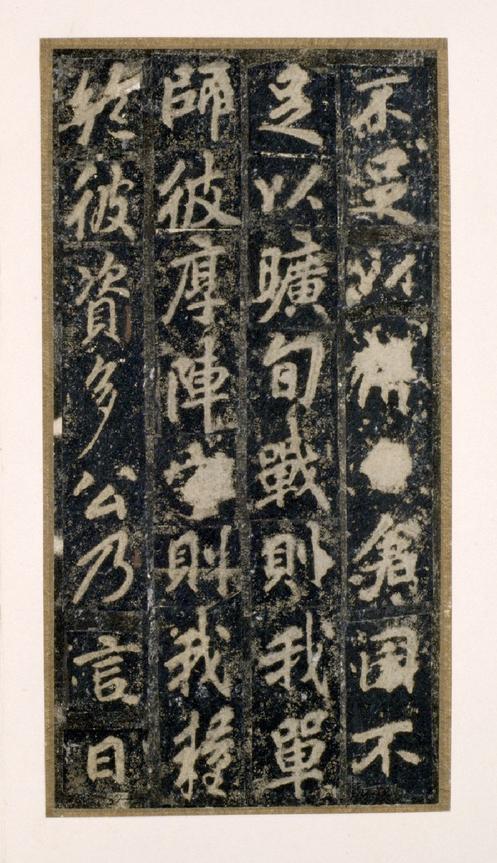 不足以倉囷不
足以曠旬戰則我單
師彼厚陣守則我糧
於彼資多公乃言曰